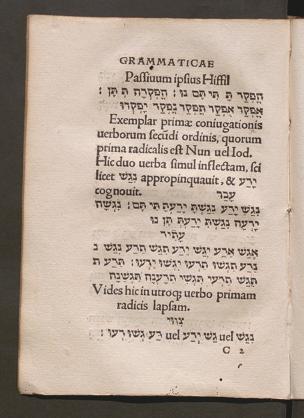 GRAMMATICAE
Passiuum ipsius Hiffil
הָפְקַר תָּ תִּי תֶּם נוּ : הָפְקְרָה תְּ תֶּן :
אָפְקַר אָפְקַר תָּפְקַר נָפְקַר יָפְקְרוּ
Exemplar primæ coniugationis
uerborum secūdi ordinis, quorum
prima radicalis est Nun uel Iod.
Hic duo uerba simul inflectam, sci
licet נָגַשׁ appropinquauit, & יָדַע
cognouit. עָבַר
נָגַשׁ יָדַע נָגַשְׁתָּ יָדַעְתָּ תִּי תֶּם : נָגְשָׁה
יָדְעָה נָגַשְׁתְּ יָדַעְתְּ תֶּן נוּ
עָתִיד
אֶגַּשׁ אֵדַע יִגַּשׁ יֵדַע תִּגַּשׁ תֵּדַע נִגַּשׁ נ
נֵדַע תִּגְּשׁוּ תֵּדְעוּ יִגְּשׁוּ יֵדְעוּ : תֵּדַע ת
תִּגַּשׁ תֵּדְעִי תִּגְּשִׁי תֵּדַעְנָה תִּגַּשְׁנָה
Vides hic in utroq; uerbo primam
radicis lapsam.
צִוּוּי
נְגַשׁ uel גַּשׁ יְדַע uel דַּע : גְּשׁוּ דְּעוּ
C 2